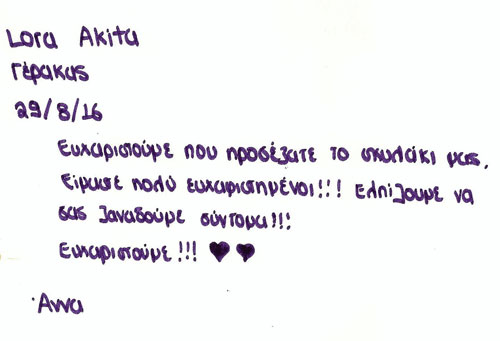 Lora Akita
Γέρακας
29/8/16
Ευχαριστούμε που προσέξατε το σκυλάκι μας.
Είμαστε πολύ ευχαριστημένοι!!! Ελπίζουμε να
σας ξαναδούμε σύντομα!!!
Ευχαριστούμε!!! ♥♥
Άννα